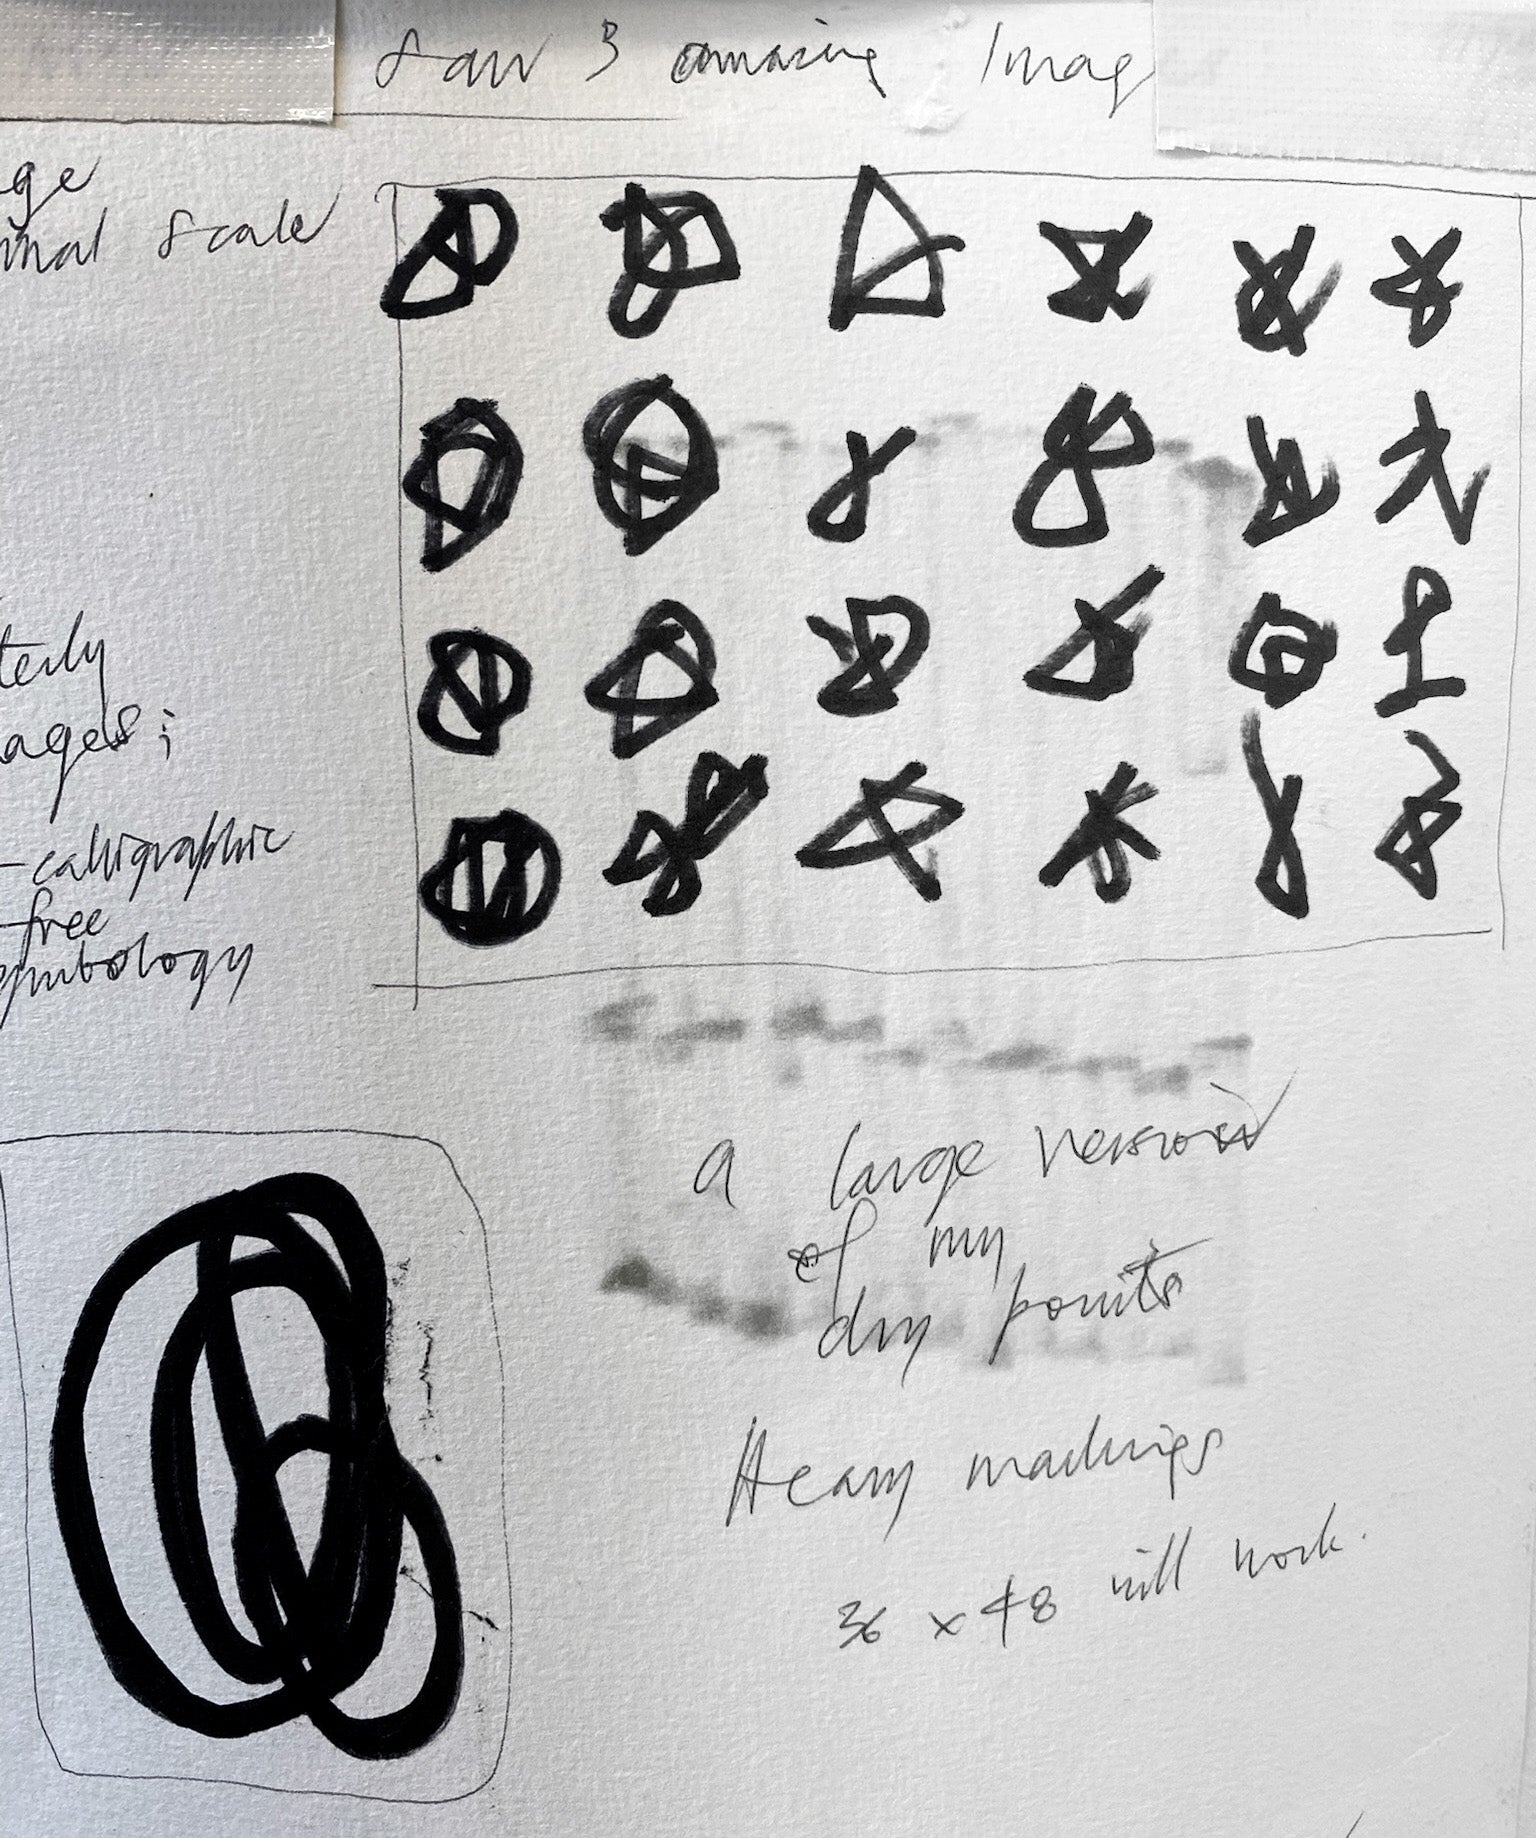 Saw 3 amazing Imag
ge
scale
terly
ages;
-calligraphic
-free
symbology
a large version
of my
dry points
Heavy markings
36 x 48 will work.